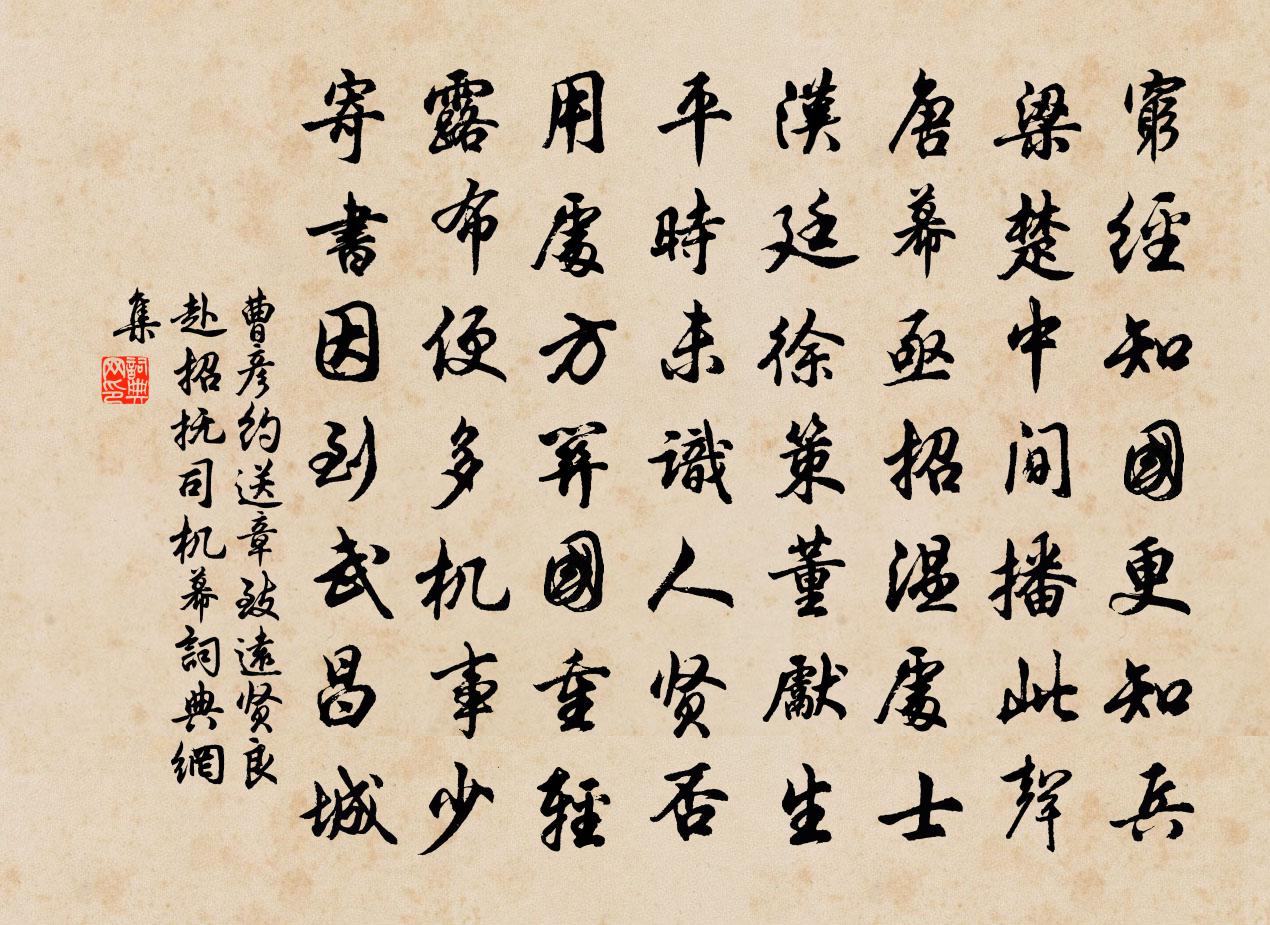 窮經知國更知兵
梁楚中间播此聲
唐幕亟招溫處士
漢廷徐策董獻生
平時未識人贤否
用處方關國重輕
露布便多机事少
寄書因到武昌城
曹彦約送章致遠贤良
赴招抚司机幕詞典網
集
詞典網印